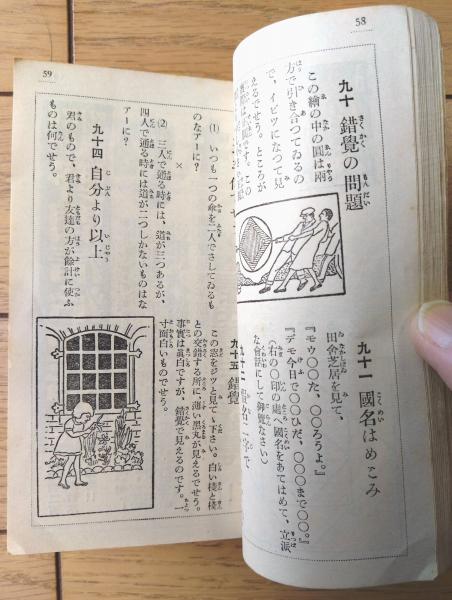 58
九十 錯覺の問題
この繪の中の圓は兩
方で引き合つてゐるの
で、イビツになつて見
えるでせう。ところが
九十一 國名はめこみ
田舎芝居を見て、
『モウ〇〇た、〇〇ろうよ。』
『デモ今日で〇〇ひだ、〇〇〇まで〇〇。』
(右の〇印の處へ國名をあてはめて、立派
な會話にして御覽なさい)
59
(1) いつも一つの傘を二人でさしてゐるも
のなアーに?
×
(2) 三人で通る時には、道が三つあるが、
四人で通る時には道が二つしかないものはな
アーに?
九十四 自分より以上
君のもので、君より友達の方が餘計に使ふ
ものは何でせう。
九十五 錯覺
この窓をジツと見て下さい。白い棧と棧
との交錯する所に、薄い黒丸が見えるでせう。
事實は眞白ですが、錯覺で見えるのです。一
寸面白いものでせう。